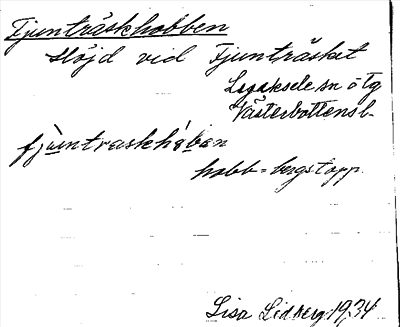 Fjunträskhobben
Höjd vid Fjunträsket
Lycksele sn ö tg
Västerbottens l.
fju̱ntraskhɔ́ban
hobb = bergstopp.
Lisa Lidberg 1934